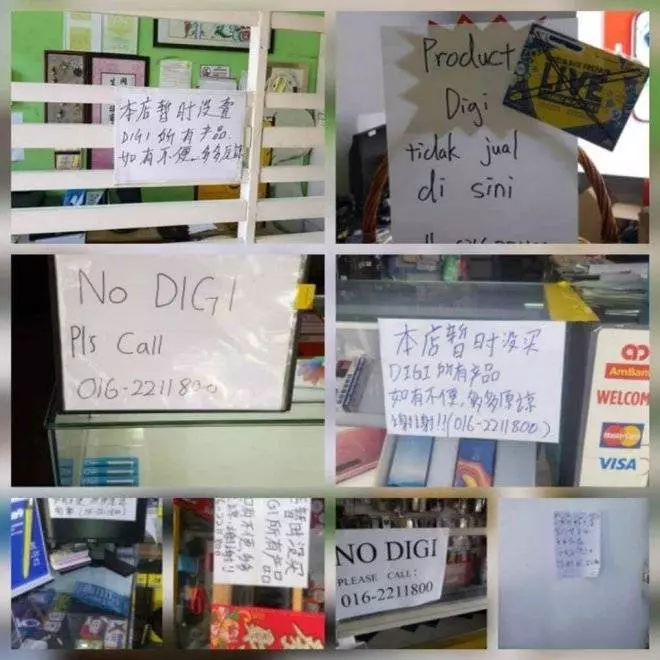 本店暂时没賣
DIGI 所有产品.
如有不便,多多
Product
Digi
tidak jual
di sini
LIVE
No DIGI
Pls Call
016-2211800
本店暂时没买
DIGI 所有产品
如有不便,多多原谅
谢谢!!(016-2211800)
AmBan
WELCOM
MasterCard
VISA
暂时没买
GI所有产品
有不便,多多
NO DIGI
PLEASE CALL :
016-2211800